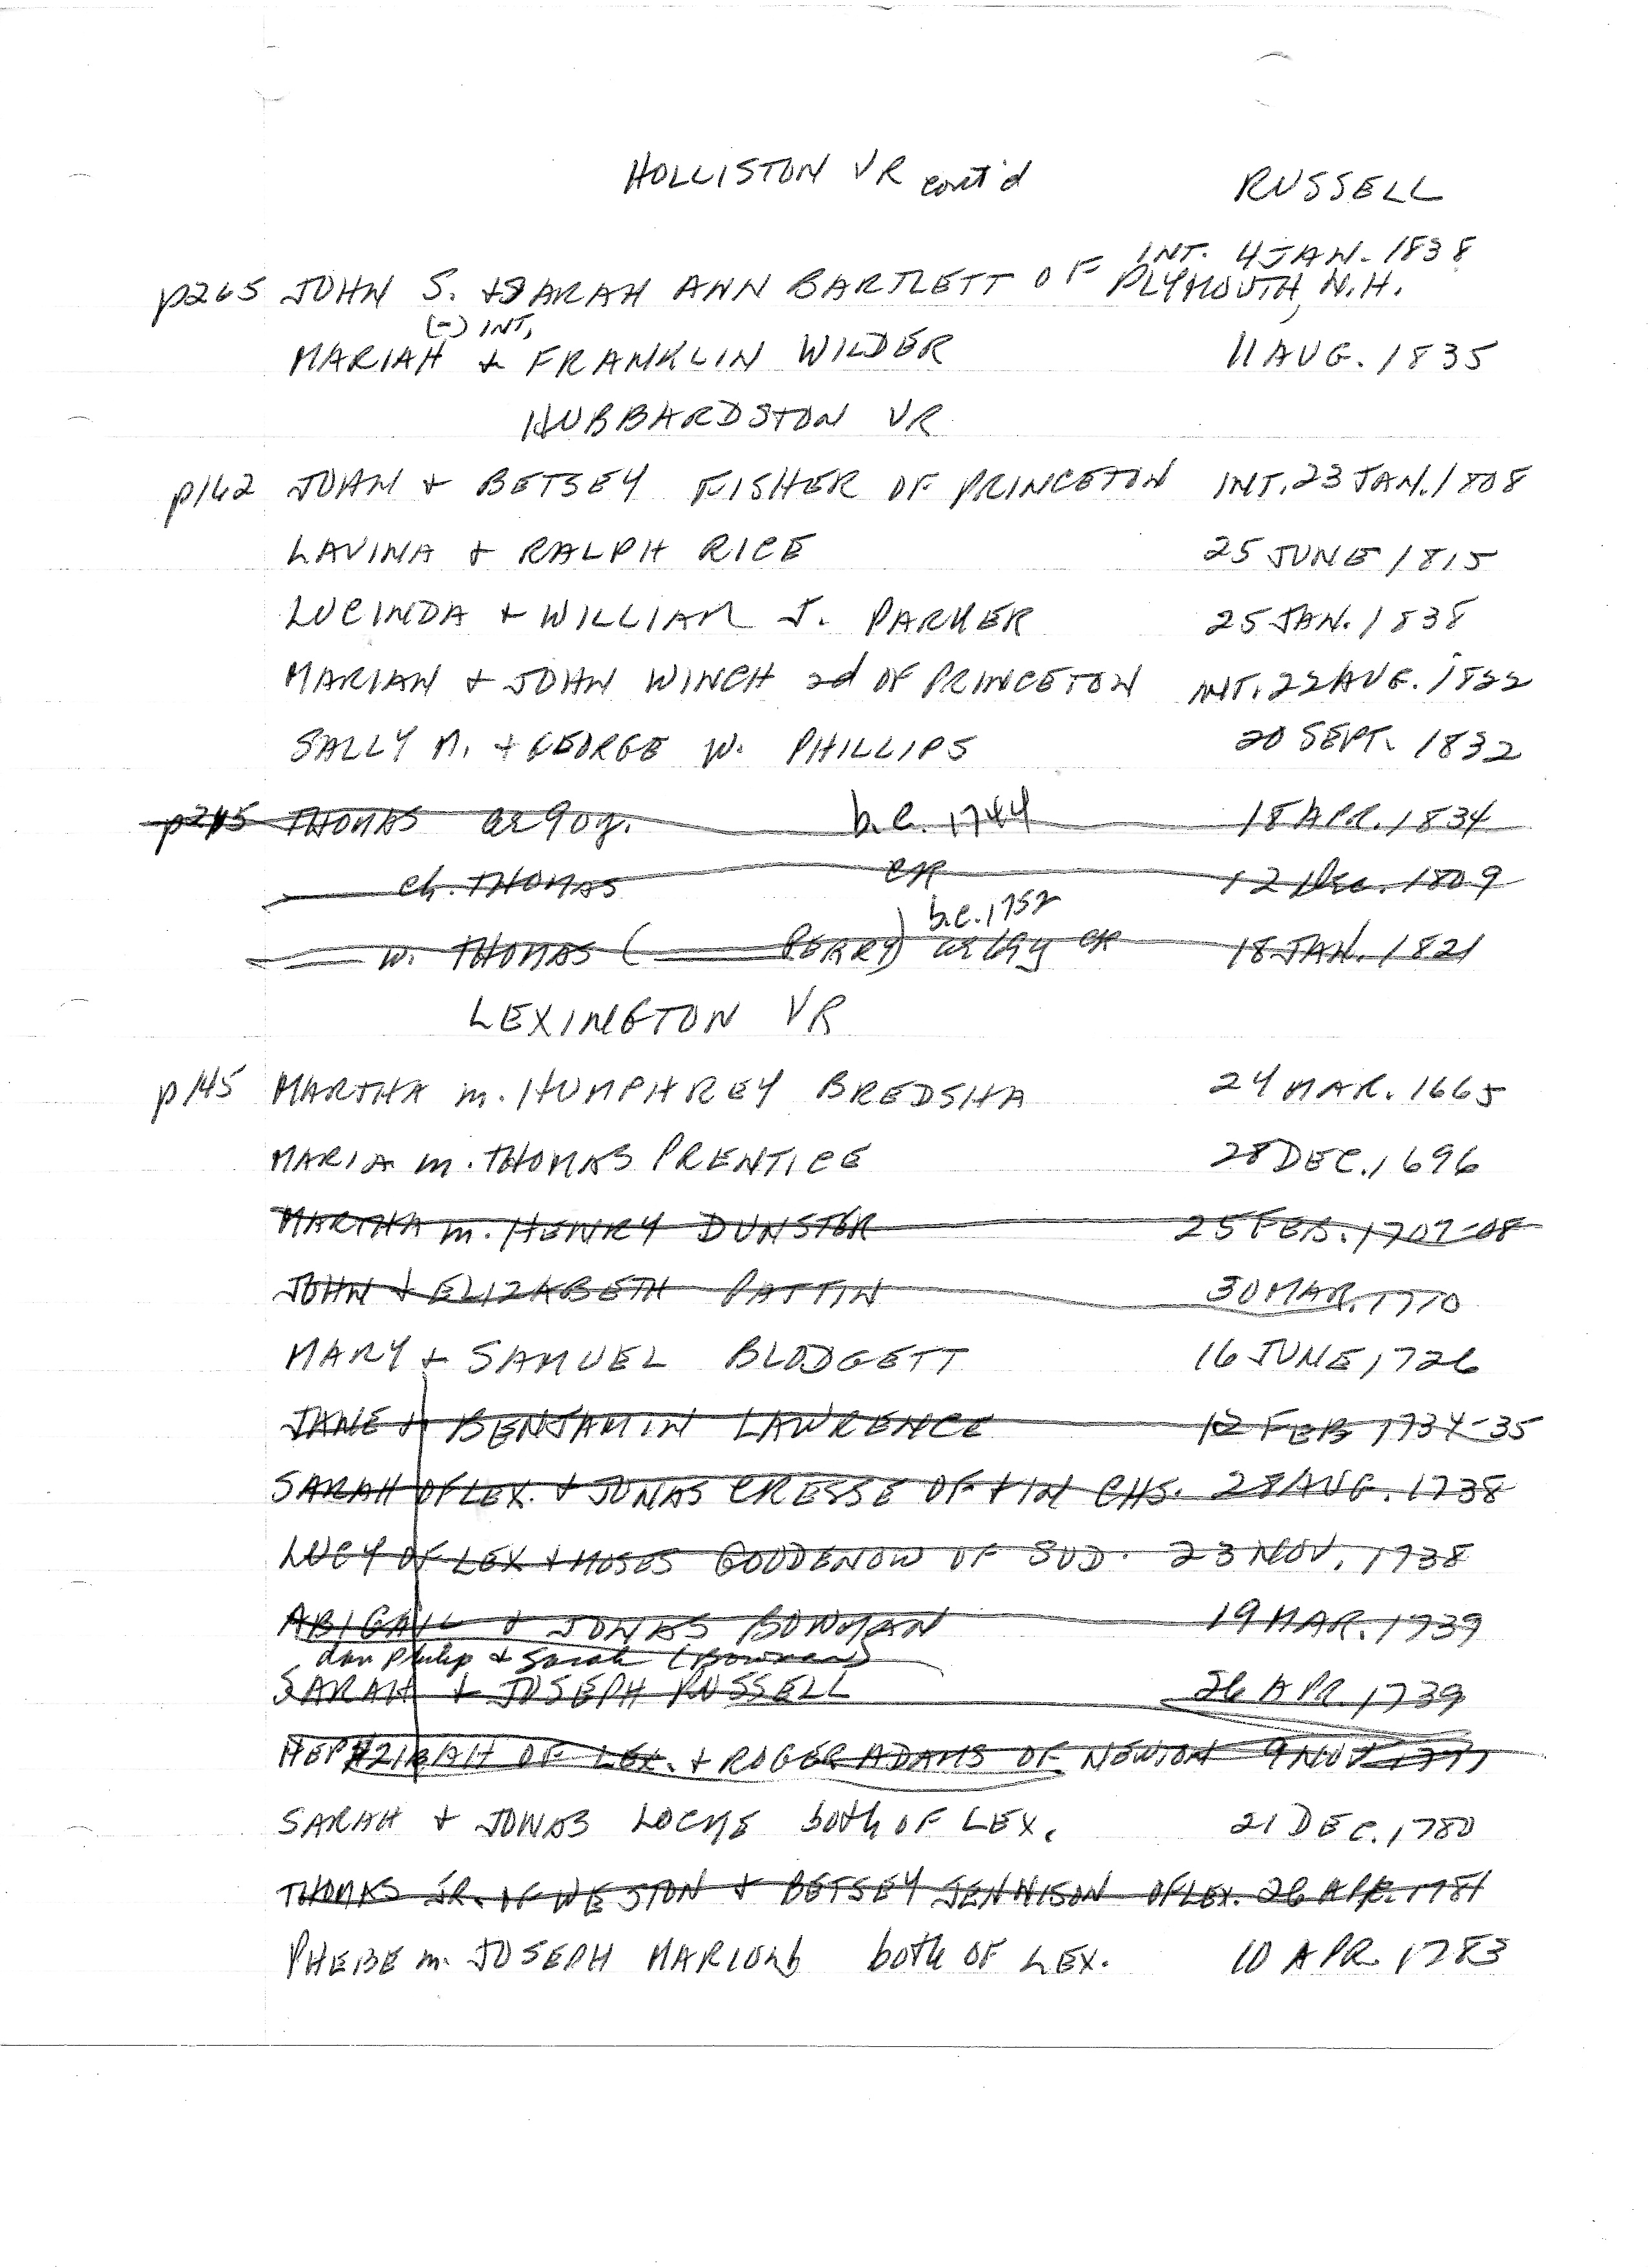 HOLLISTON VR cont'd RUSSELL
INT. 4 JAN. 1838
p265 JOHN S. + SARAH ANN BARTLETT OF PLYMOUTH, N.H.
(-) INT,
MARIAH + FRANKLIN WILDER 11 AUG. 1835
HUBBARDSTON VR
p162 JOHN + BETSEY FISHER OF PRINCETON INT. 23 JAN. 1808
LAVINA + RALPH RICE 25 JUNE 1815
LUCINDA + WILLIAM J. PARKER 25 JAN. 1838
MARIAN + JOHN WINCH 2d OF PRINCETON INT. 22 AUG. 1822
SALLY M. + GEORGE W. PHILLIPS 20 SEPT. 1832
THOMAS ae 90y. b.c. 1744 18 APR. 1834
ch. THOMAS CR 12 Dec. 1809
b.c. 1752
w. THOMAS ( PERRY) CR 18 JAN. 1821
LEXINGTON VR
p145 MARTHA m. HUMPHREY BREDSHA 24 MAR. 1665
MARIA m. THOMAS PRENTICE 28 DEC. 1696
MARTHA m. HENRY DUNSTER 25 FEB. 1707-08
JOHN + ELIZABETH PATTIN 30 MAR. 1710
MARY + SAMUEL BLODGETT 16 JUNE 1726
JANE + BENJAMIN LAWRENCE 12 FEB 1734-35
SARAH OF LEX. + JONAS CRESSE OF + IN CHS. 28 AUG. 1738
LUCY OF LEX + MOSES GOODENOW OF SUD. 23 NOV. 1738
ABIGAIL + JONAS BOWMAN 19 MAR. 1739
dau Philip + Sarah (Bowman)
SARAH + JOSEPH RUSSELL 26 APR. 1739
HEPHZIBAH OF LEX. + ROGER ADAMS OF NEWTON 9 NOV
SARAH + JONAS LOCKE both OF LEX. 21 DEC. 1780
THOMAS JR. OF WESTON + BETSEY JENNISON OF LEX. 26 APR. 1781
PHEBE m. JOSEPH MARION both OF LEX. 10 APR. 1783